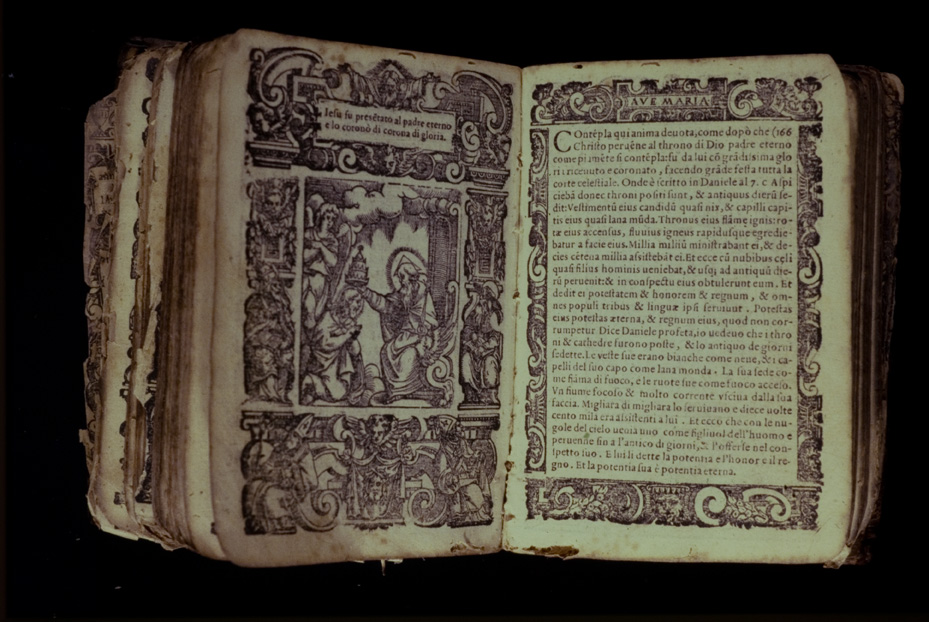 Iesu fu presẽtato al padre eterno
e lo coronò di corona di gloria.
AVE MARIA
COntẽpla qui anima deuota, come dopò che (166
Christo peruẽne al throno di Dio padre eterno
come piamẽte si contẽpla: fu da lui cõ grãdissima glo
ria riceuuto e coronato, facendo grãde festa tutta la
corte celestiale. Onde è scritto in Daniele al 7. c Aspi
ciebã donec throni positi sunt, & antiquus dierũ se-
dit: Vestimentũ eius candidũ quasi nix, & capilli capi-
tis eius quasi lana mũda. Thronus eius flãmę ignis: ro-
tæ eius accensus, fluuius igneus rapidusque egredie-
batur a facie eius. Millia milliũ ministrabant ei, & de-
cies cẽtena millia assistebãt ei. Et ecce cũ nubibus cęli
quasi filius hominis ueniebat, & usq; ad antiquũ die-
rũ peruenit: & in conspectu eius obtulerunt eum. Et
dedit ei potestatem & honorem & regnum, & om-
nes populi tribus & linguæ ipsi seruiunt. Potestas
eius potestas æterna, & regnum eius, quod non cor-
rumpetur Dice Daniele profeta, io uedeuo che i thro
ni & cathedre furono poste, & lo antiquo de giorni
sedette. Le veste sue erano bianche come neue, & i ca-
pelli del suo capo come lana monda. La sua sede co-
me fiama di fuoco, e le ruote sue come fuoco acceso.
Vn fiume focoso & molto corrente vsciua dalla sua
faccia. Migliara di migliara lo seruiuano e diece uolte
cento mila era assistenti a lui. Et ecco che con le nu-
gole del cielo uenia uno come figliuol dell'huomo e
peruenne fin a l'antico di giorni, & l'offerse nel con-
spetto suo. E lui li dette la potentia e l'honor e il re-
gno. Et la potentia sua è potentia eterna.